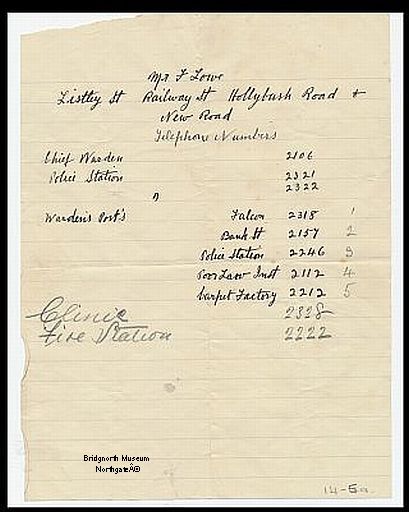 Mr F Lowe
Listley St Railway St Hollybush Road &
New Road
Telephone Numbers
Chief Warden 2106
Police Station 2321
" 2322
Warden's Post's Falcon 2318 1
Bank St 2157 2
Police Station 2246 3
Poor Law Inst 2112 4
Carpet Factory 2212 5
Clinic 2328
Fire Station 2222
Bridgnorth Museum
NorthgateÂ©
14-5a.